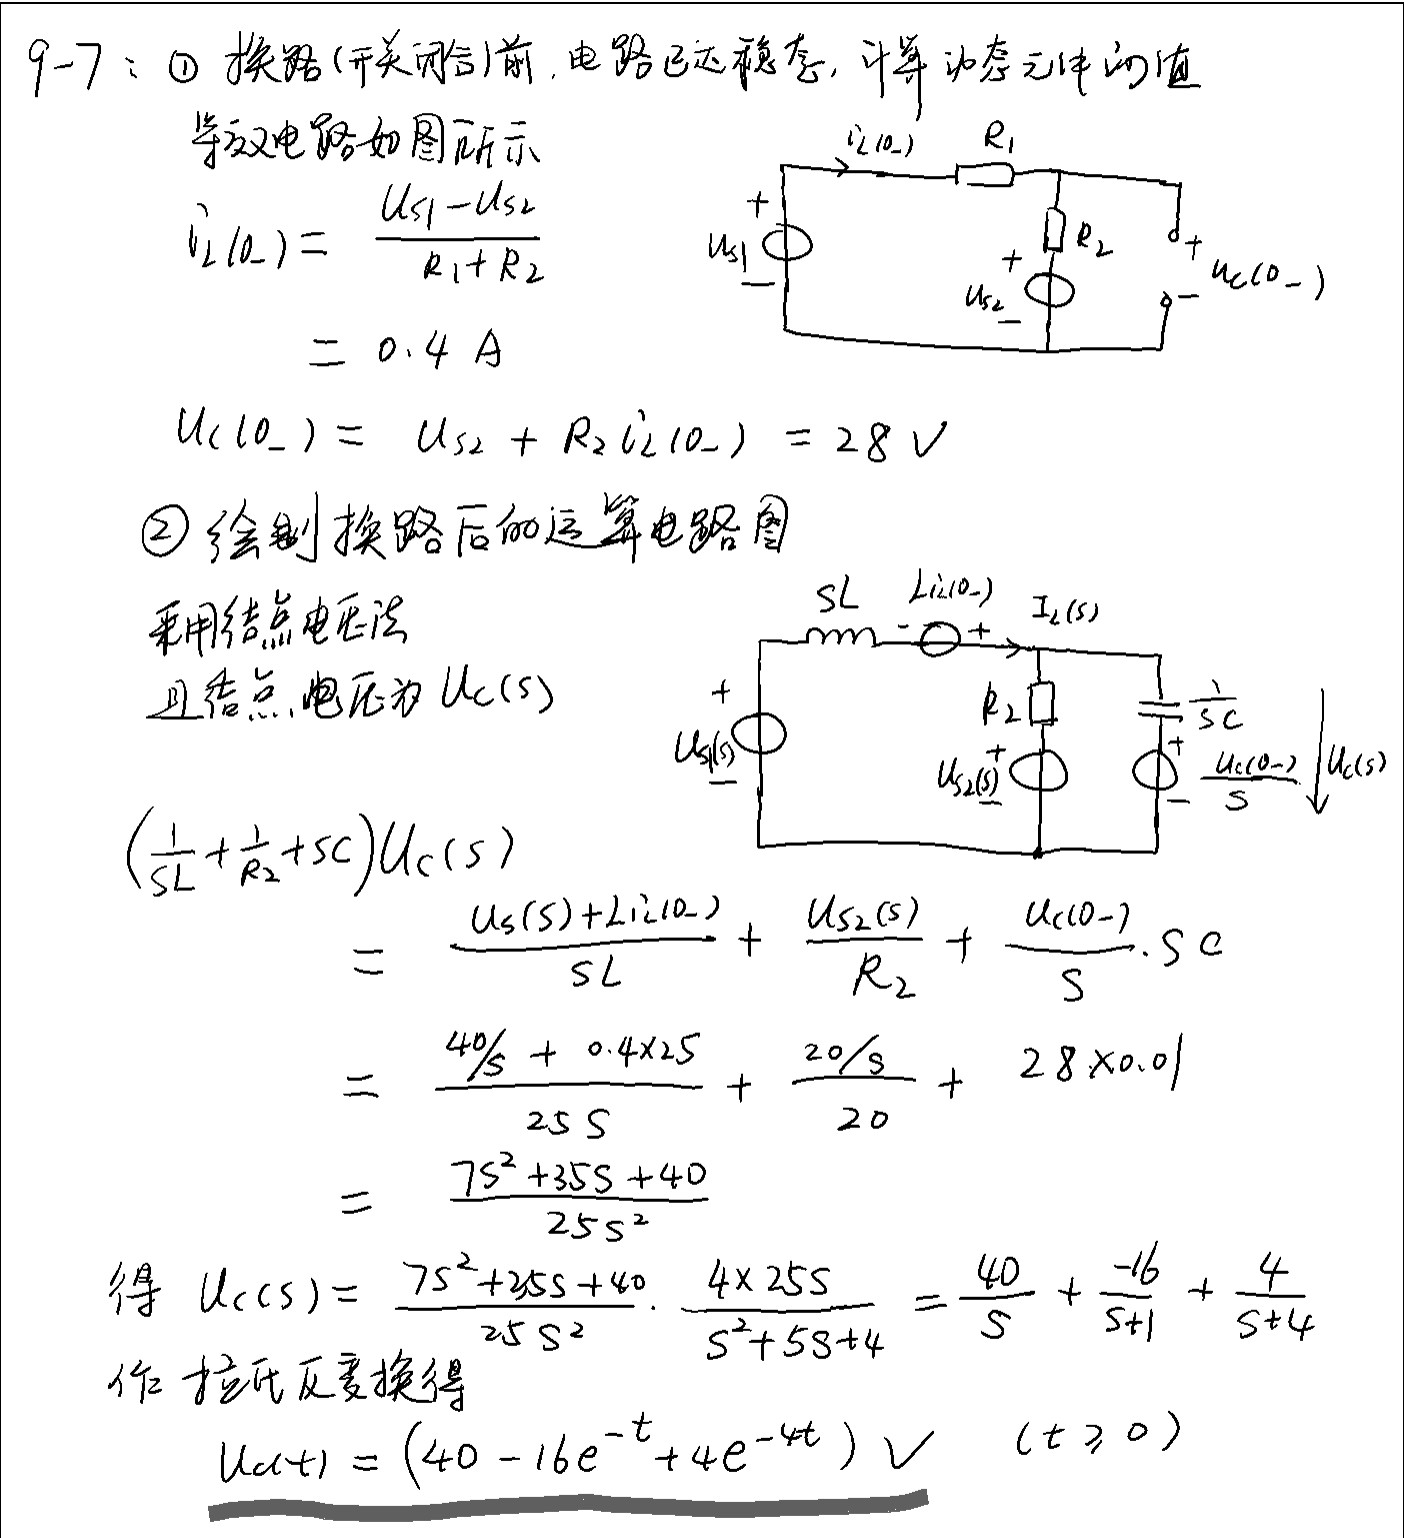 9-7: ① 换路(开关闭合)前,电路已达稳态,计算动态元件的值
等效电路如图所示
iL(0-) = (US1-US2)/(R1+R2)
= 0.4 A
iL(0-) R1
+ uS1 -
R2
+ uS2 -
+ uC(0-) -
uC(0-) = US2 + R2 iL(0-) = 28 V
② 绘制换路后的运算电路图
采用结点电压法
且结点电压为 UC(s)
SL LiL(0-) IL(s)
- +
+ US1(s) -
R2
+ US2(s) -
1/SC
+ uC(0-)/S -
UC(s)
(1/SL + 1/R2 + SC) UC(s)
= (US(s)+LiL(0-))/SL + US2(s)/R2 + uC(0-)/S · SC
= (40/s + 0.4×25)/25S + (20/s)/20 + 28×0.01
= (7S²+35S+40)/25S²
得 UC(s) = (7S²+35S+40)/25S² · (4×25S)/(S²+5S+4) = 40/S + -16/(S+1) + 4/(S+4)
作拉氏反变换得
uC(t) = (40 - 16e^-t + 4e^-4t) V (t ≥ 0)